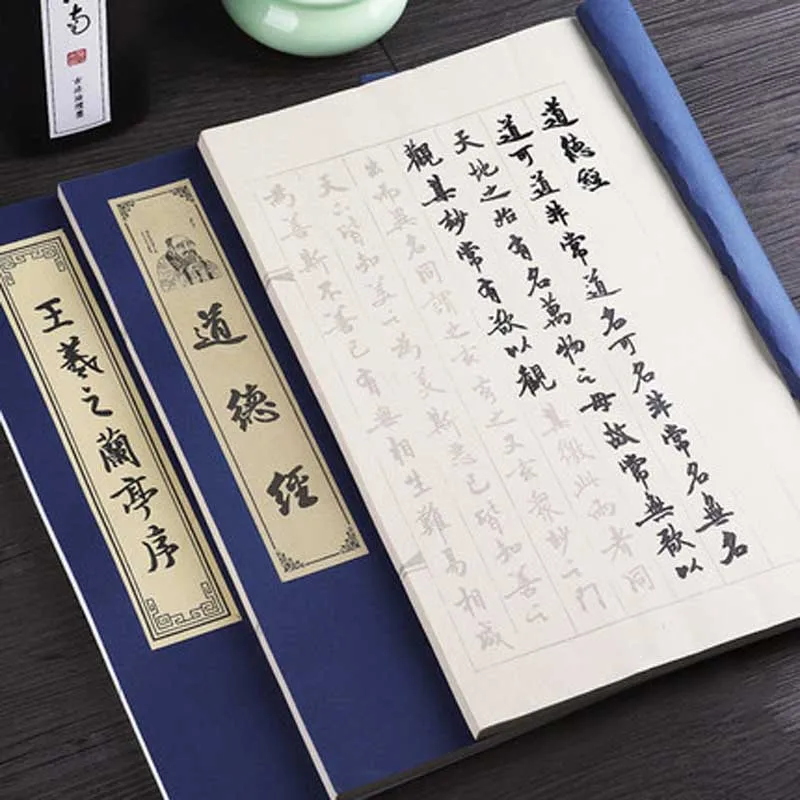 道德經
道可道非常道名可名非常名無名
天地之始有名萬物之母故常無欲以
觀其妙常有欲以觀其徼此兩者同
出而異名同謂之玄玄之又玄衆妙之门
天下皆知美之為美斯惡已皆知善之
為善斯不善已有無相生難易相成
道德经
王羲之蘭亭序
南